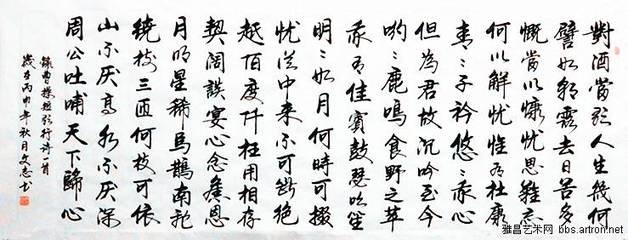 對酒當歌人生幾何
譬如朝露去日苦多
慨當以慷憂思難忘
何以解憂惟有杜康
青々子衿悠々我心
但為君故沉吟至今
呦々鹿鳴食野之苹
我有佳賓鼓瑟吹笙
明々如月何時可掇
憂從中来不可斷絶
越陌度阡枉用相存
契闊談宴心念舊恩
月明星稀烏鵲南飛
繞枝三匝何枝可依
山不厌高水不厌深
周公吐哺天下歸心
錄曹操短歌行詩一首
歲在丙申年秋月文志書
雅昌艺术网 bbs.artron.net